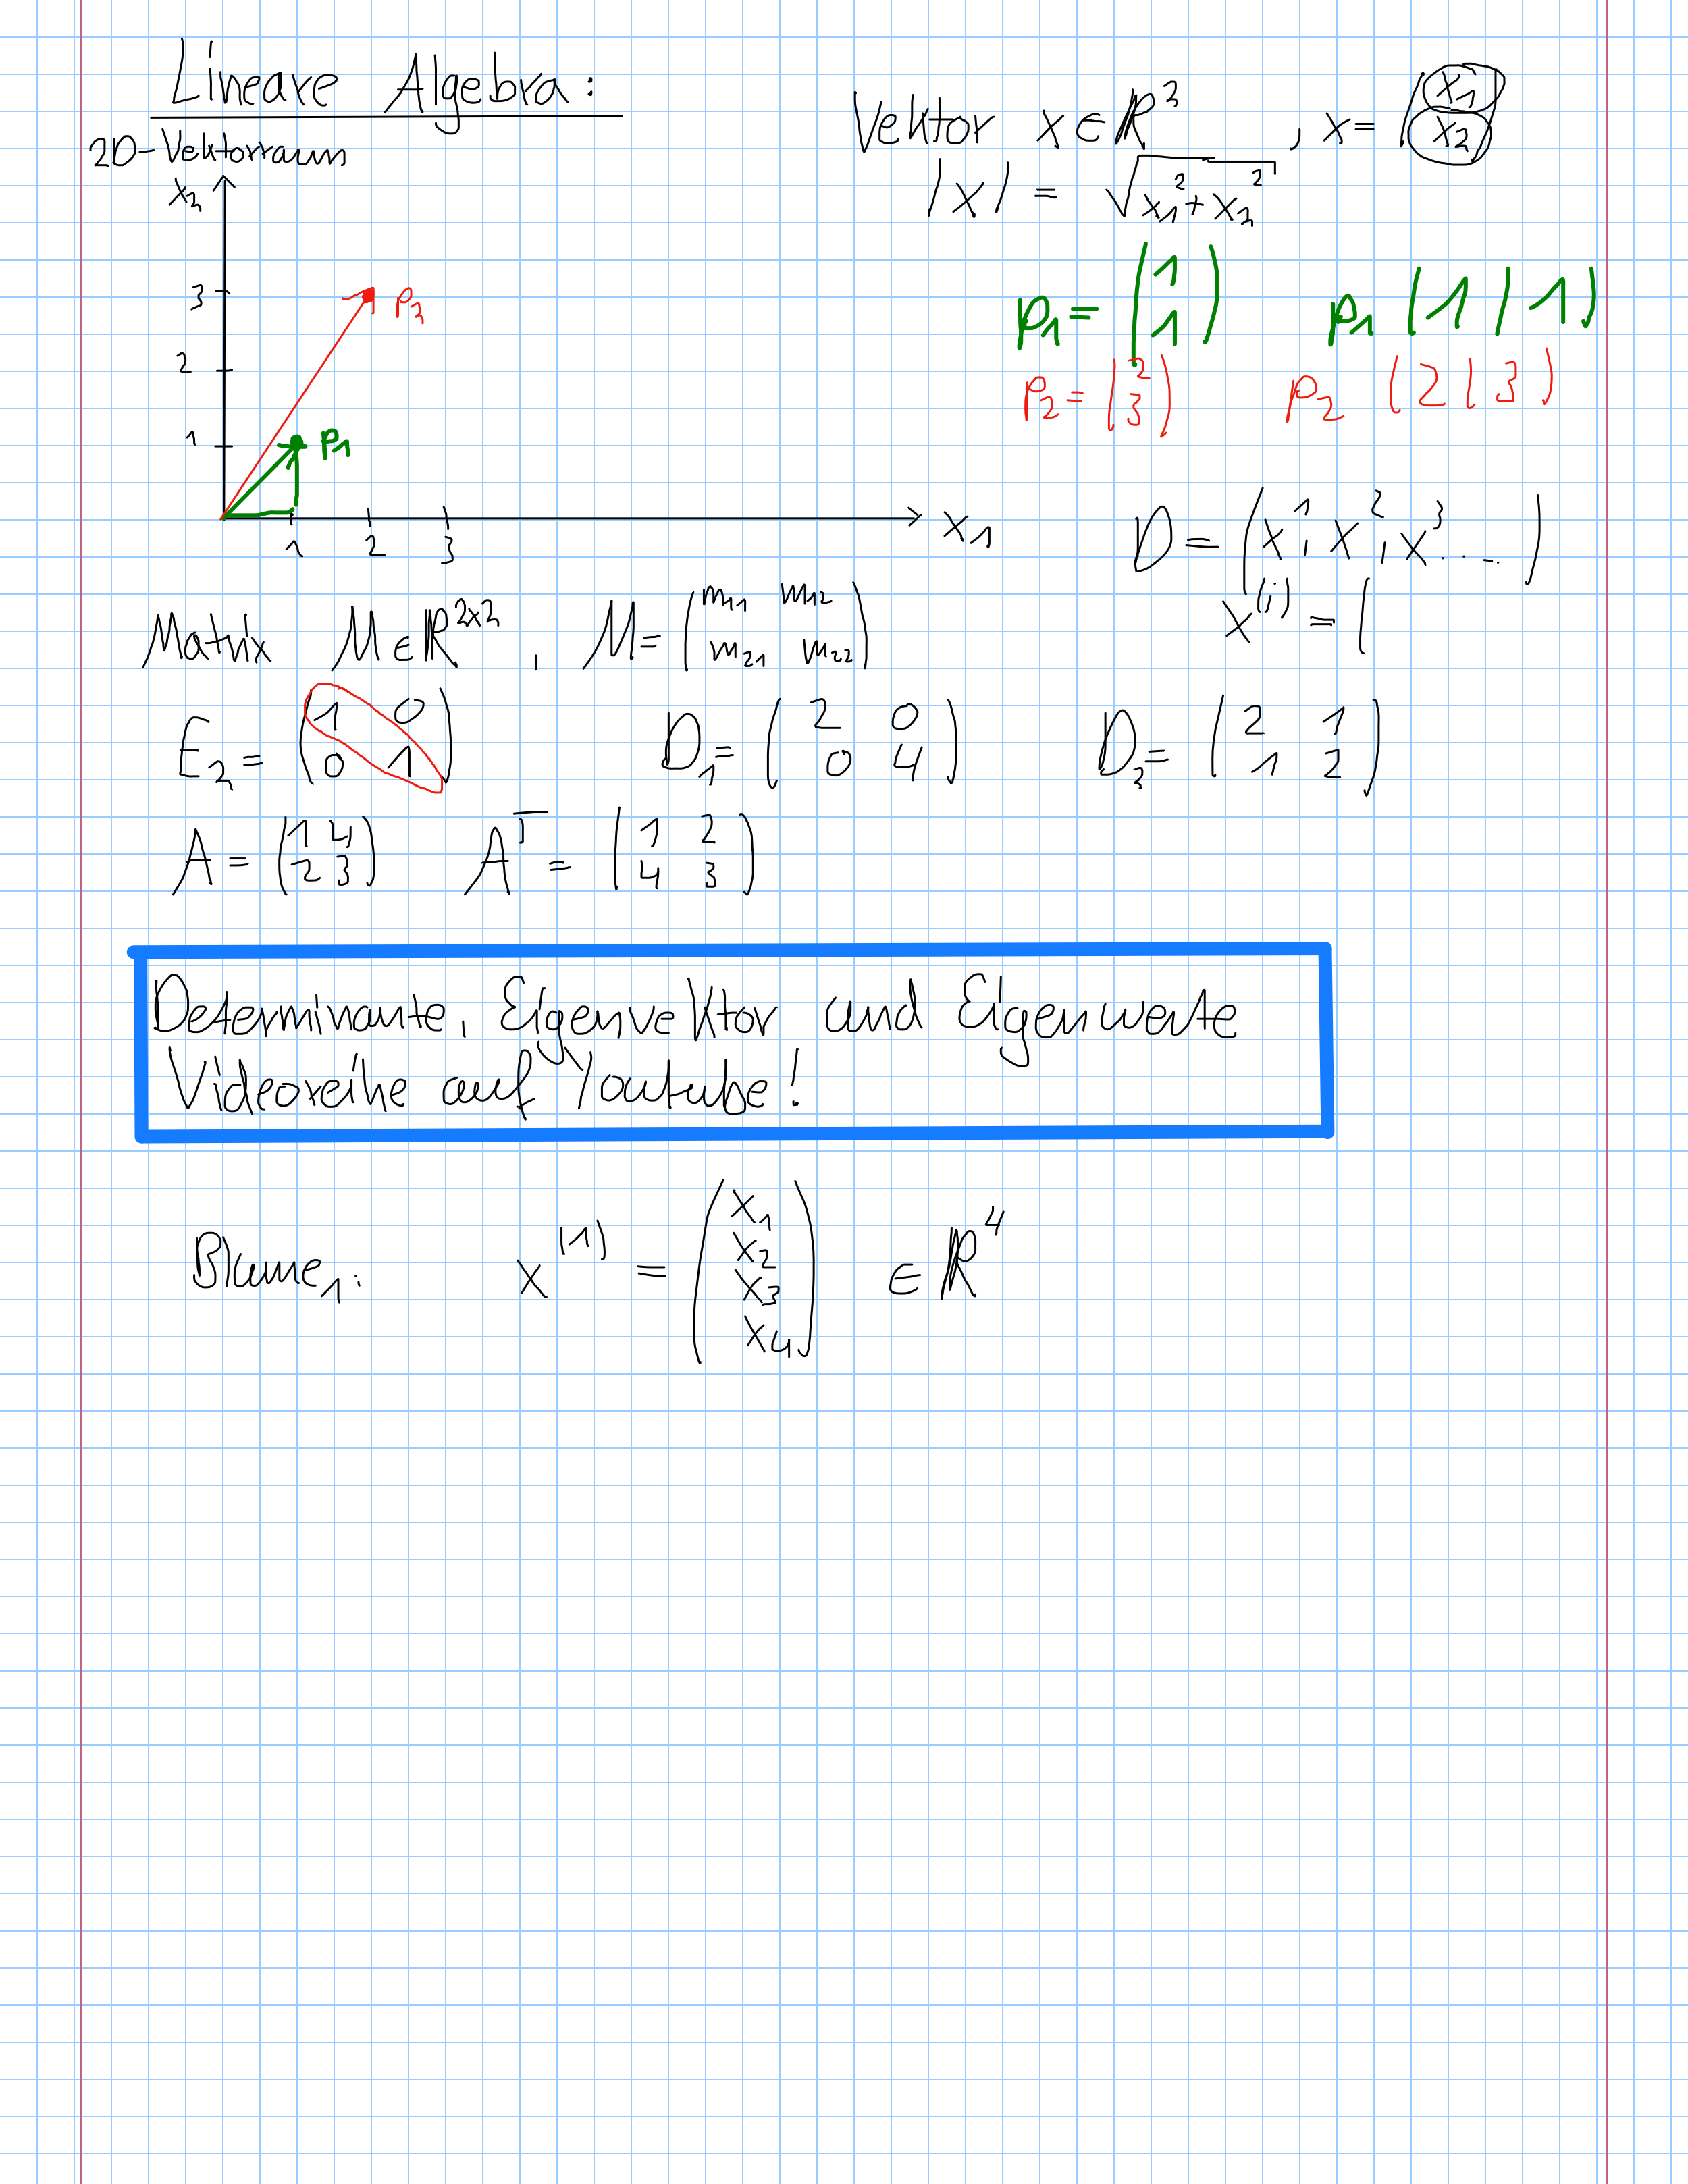 Lineare Algebra:
2D-Vektorraum
x₂
3
2
1
p₂
p₁
1 2 3
x₁
Vektor x ∈ ℝ² , x = (x₁ x₂)
|x| = √(x₁² + x₂²)
p₁ = (1 1) p₁ (1|1)
p₂ = (2 3) p₂ (2|3)
D = (x¹, x², x³ ... )
x⁽ⁱ⁾ = (
Matrix M ∈ ℝ²ˣ² , M = (m₁₁ m₁₂
m₂₁ m₂₂)
E₂ = (1 0
0 1)
D₁ = (2 0
0 4)
D₂ = (2 1
1 2)
A = (1 4
2 3)
Aᵀ = (1 2
4 3)
Determinante, Eigenvektor und Eigenwerte
Videoreihe auf Youtube!
Blume₁: x⁽¹⁾ = (x₁
x₂
x₃
x₄) ∈ ℝ⁴